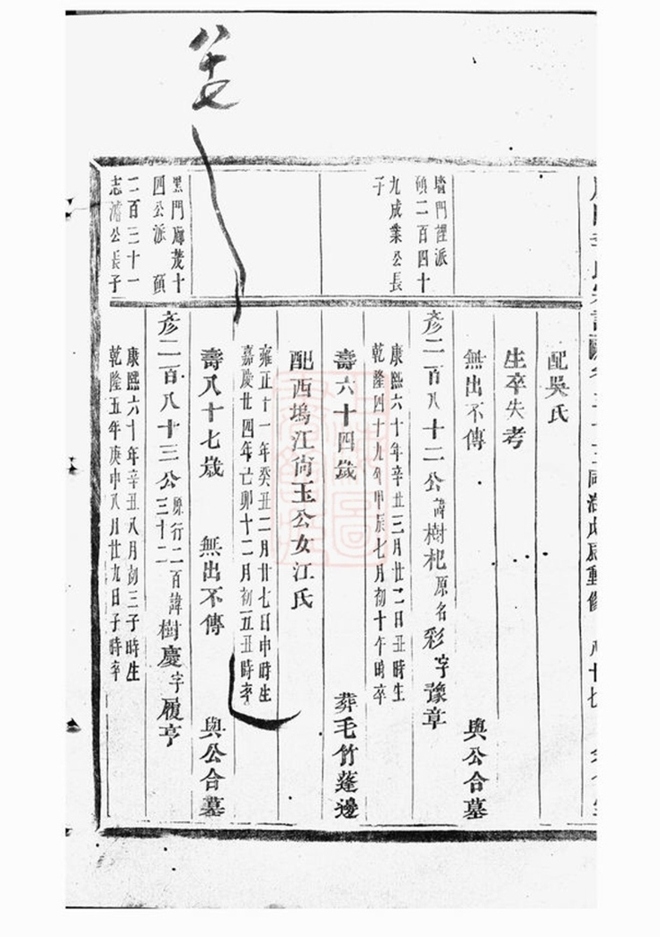 八十七
配吳氏
生卒失考
無出不傳 與公合墓
墻門裡派
碩二百四十
九成業公長
子
彥二百八十二公諱樹杞原名彩字豫章
康熙六十年辛丑三月廿二日丑時生
乾隆四十九年甲辰七月初十午時卒
壽六十四歲 葬毛竹蓬邊
配西塢江尚玉公女江氏
雍正十一年癸丑二月廿七日申時生
嘉慶廿四年己卯十二月初五丑時卒
壽八十七歲 無出不傳 與公合墓
黑門廳茂十
四公派 碩
二百三十一
志濤公長子
彥二百八十三公原行二百三十二諱樹慶字履亨
康熙六十年辛丑八月初三子時生
乾隆五年庚申八月廿九日子時卒